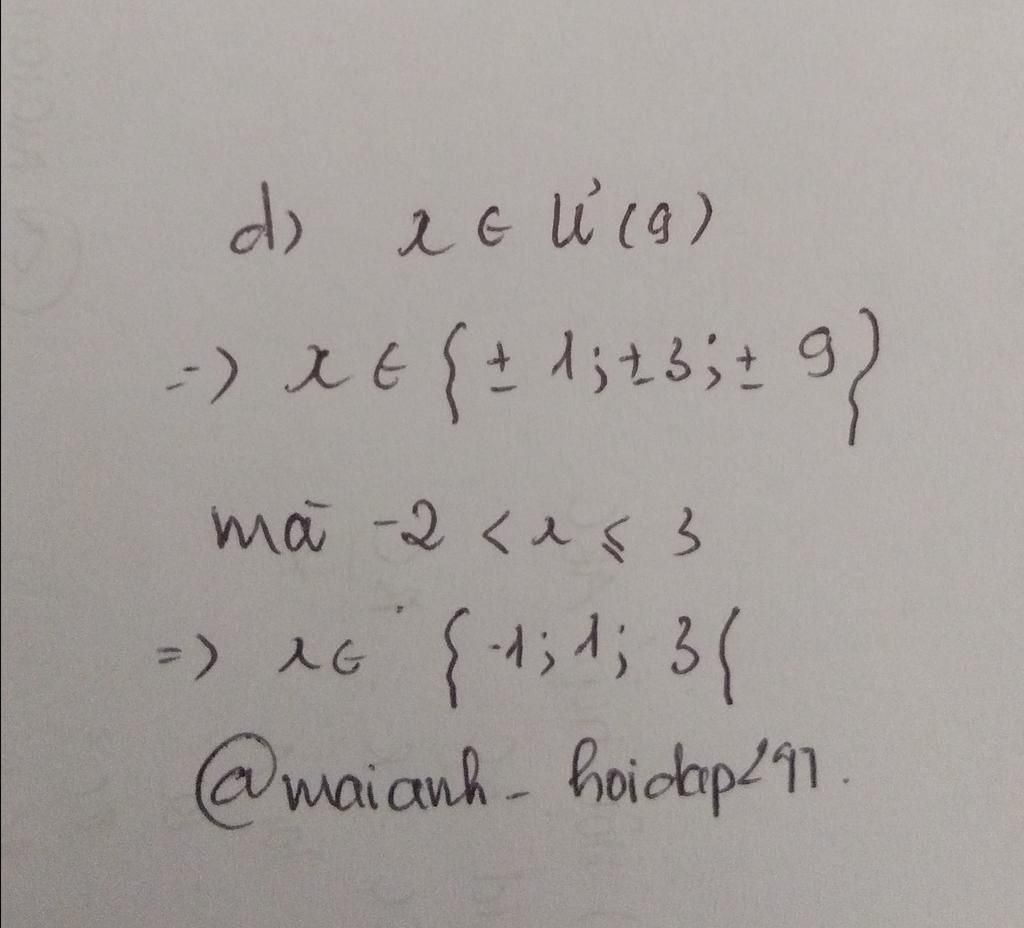 d) x ∈ Ư(9)
=> x ∈ { ± 1; ± 3; ± 9 }
mà -2 < x ≤ 3
=> x ∈ { -1; 1; 3 {
@maianh_hoidap247.